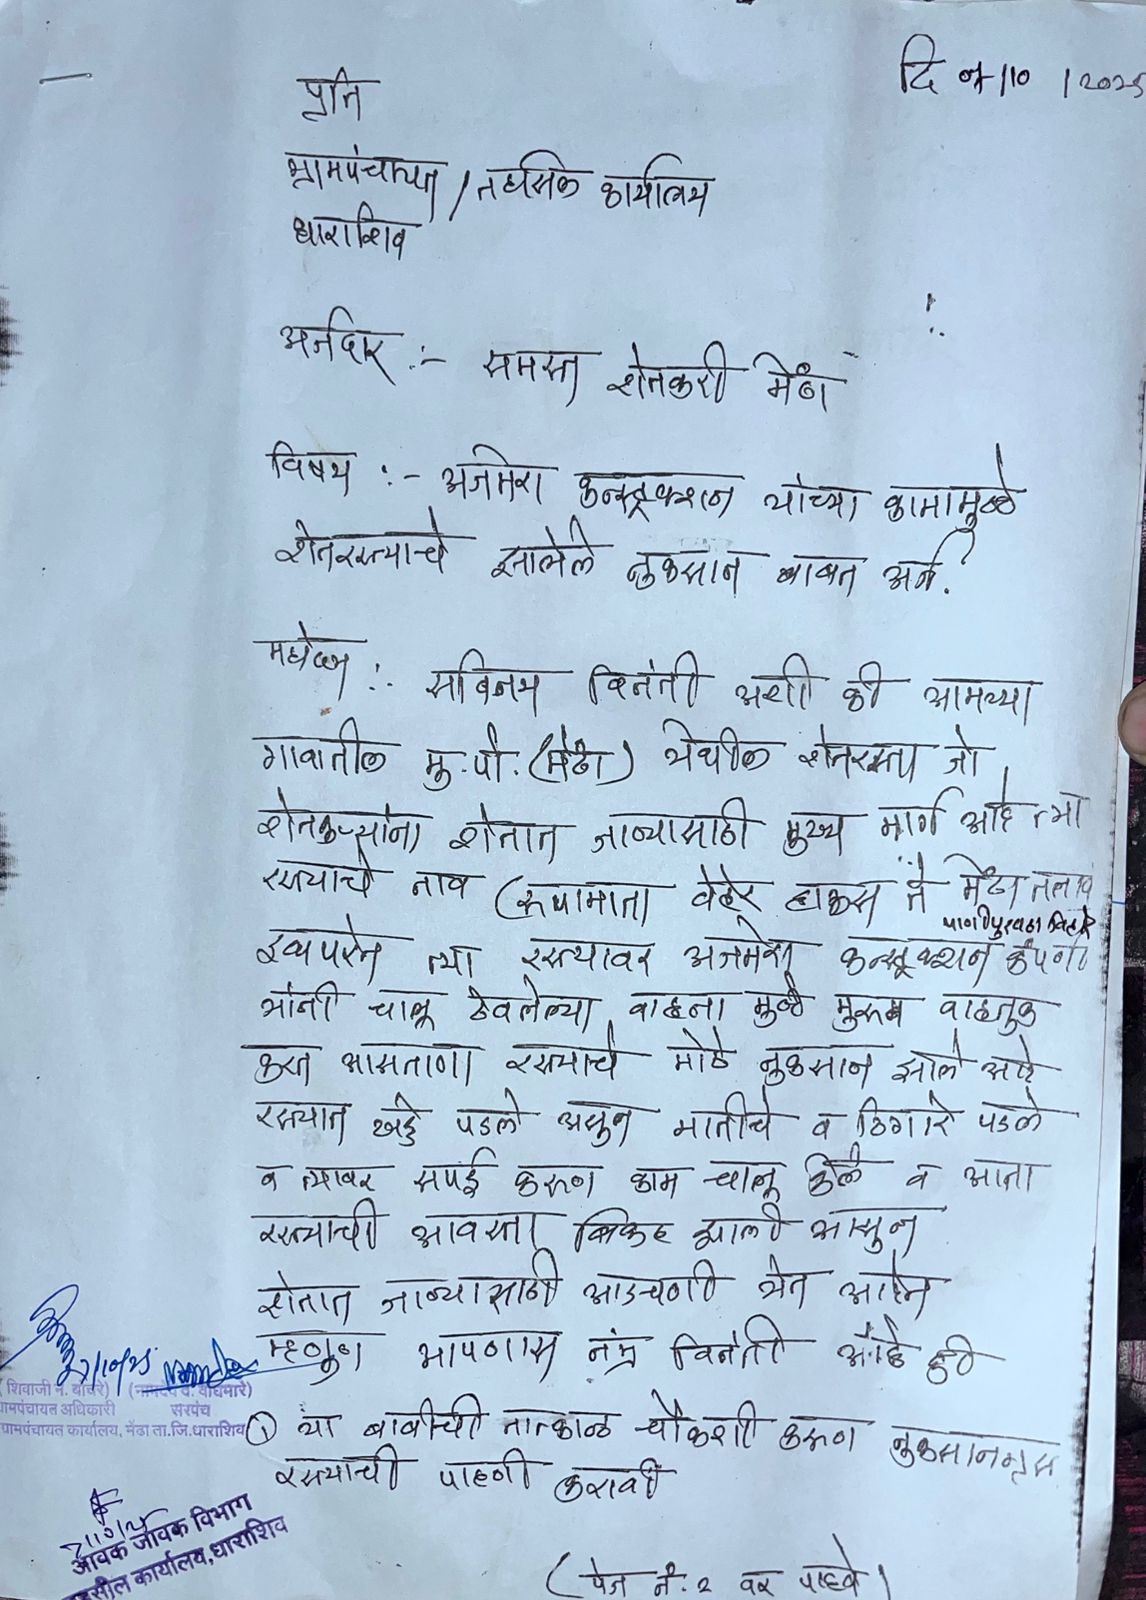 दि 07/10/2025
प्रति
ग्रामपंचायत / तहसिल कार्यालय
धाराशिव
अर्जदार :- समस्त शेतकरी मेंढा
विषय :- अजमेरा कन्स्ट्रक्शन यांच्या कामामुळे
शेतरस्त्याचे झालेले नुकसान बाबत अर्ज.
महोदय :. सविनय विनंती अशी की आमच्या
गावातील मु.पो.(मेंढा) येथील शेतरस्ता जो
शेतकऱ्यांना शेतात जाण्यासाठी मुख्य मार्ग आहे त्या
रस्त्याचे नाव (रूपामाता वेहेर हाऊस ते मेंढा तलाव
पाणीपुरवठा विहीर
इथपर्यंत त्या रस्त्यावर अजमेरा कन्स्ट्रक्शन कंपनी
यांनी चालू ठेवलेल्या वाहना मुळे मुरूम वाहतुक
करत आसताना रस्त्याचे मोठे नुकसान झाले आहे
रस्त्यात खड्डे पडले असुन मातीचे व ढिगारे पडले
व त्यावर सपाई करुण काम चालू केले व आता
रस्त्याची आवस्ता बिकट झाली आसुन
शेतात जाण्यासाठी आडचणी येत आहेत
म्हणुण आपणास नंम्र विनंती आहे की
① या बाबीची तात्काळ चौकशी करूण नुकसानग्रस्त
रस्त्याची पाहणी करावी
(पेज नं. २ वर पाहवे)
7/10/25
(नामदेव व. वाघमारे)
ग्रामपंचायत अधिकारी सरपंच
ग्रामपंचायत कार्यालय, मेंढा ता.जि.धाराशिव
आवक जावक विभाग
तहसील कार्यालय, धाराशिव